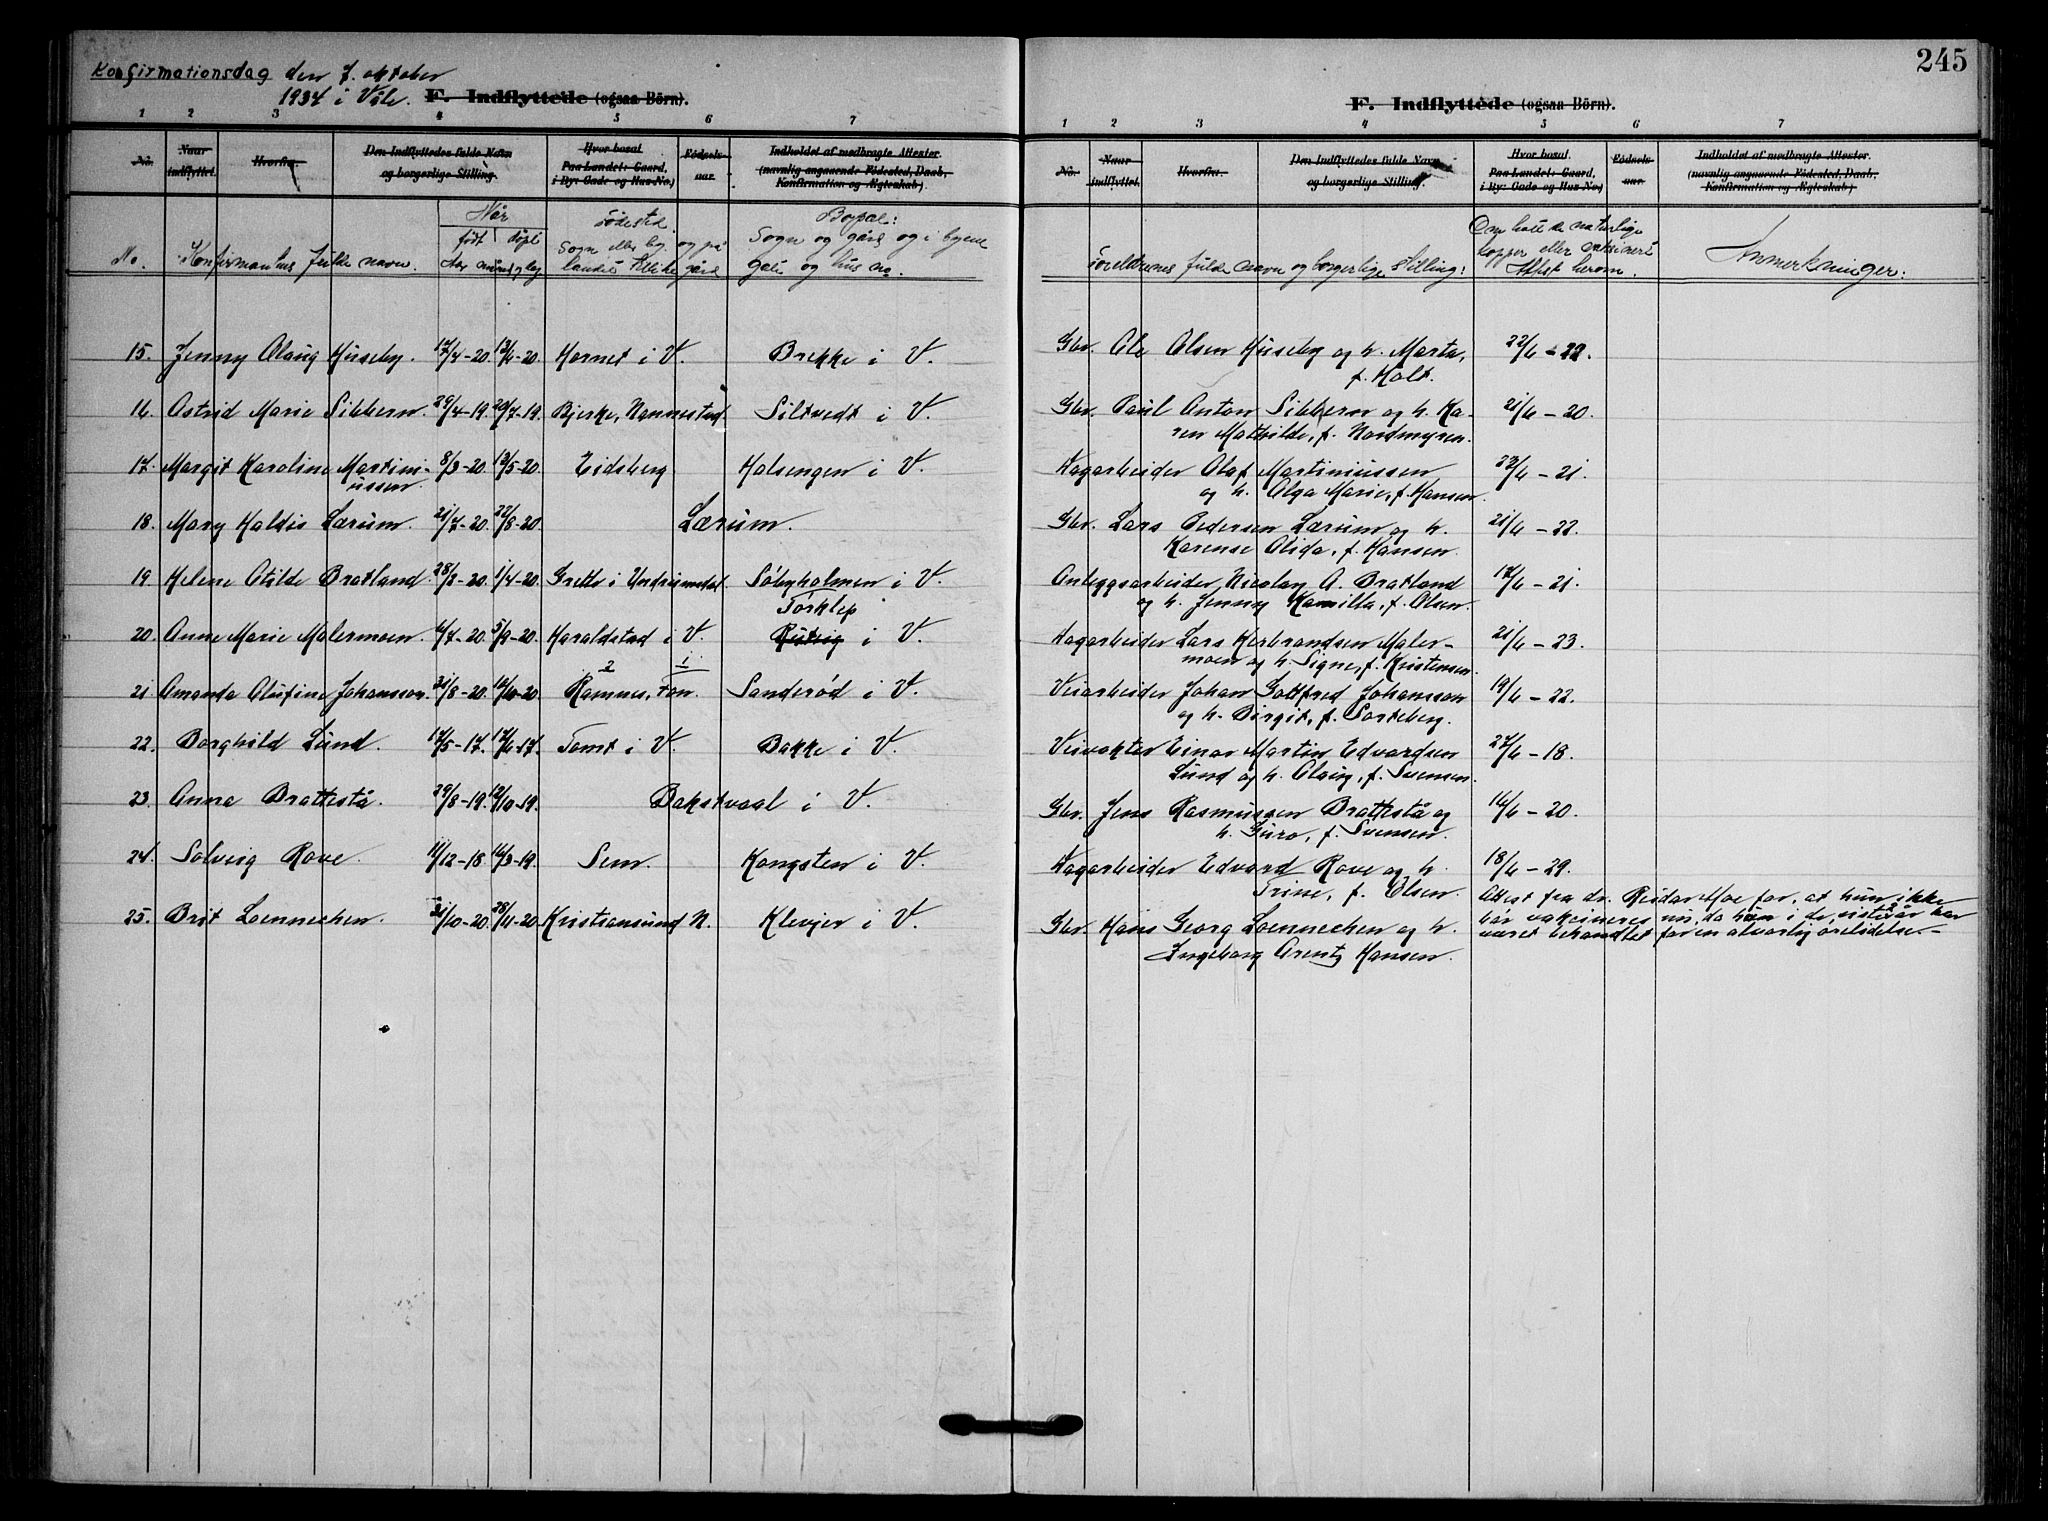 Konfirmationsdag den 7. oktober
1934 i Våle.
F. Indflyttede (ogsaa Börn).
1 2 3 4 5 6 7
No. Naar indflyttet. Hvorfra. Den Indflyttedes fulde Navn og borgerlige Stilling. Hvor bosat. Paa Landet: Gaard, i By: Gade og Hus-No.) Födsels-aar. Indholdet af medbragte Attester. (navnlig angaaende Födested, Daab, Konfirmation og Ægteskab.)
No. Konfirmantens fulde navn. Når født døpt Fødested Sogn eller by, og på landet tillike gård Bopæl: Sogn og gård og i byene gate og hus no.
15. Jenny Olaug Huseby. 17/4-20. 13/6-20. Hornet i V. Brekke i V.
16. Astrid Marie Sibbern. 29/4-19. 20/7-19. Bjerke, Nannestad. Siltvedt i V.
17. Margit Karoline Martini-
ussen. 8/3-20. 13/5-20. Eidsberg Holsengen i V.
18. Mary Haldis Lærum. 21/7-20. 22/8-20 Lærum.
19. Helene Otilde Bratland. 28/2-20. 1/4-20. Grette i Undrumsdal. Søbyholmen i V.
Tørklep
20. Anne Marie Malermoen. 20. 20. Haraldstad i V. i V.
2 1
21 Amanda Olufine Johansson. 31/8-20. 10-20 Ramnes, Fon. Sanderød i V.
22. Borghild Lund. 17/5-17. 17/6-17. Tomt i V. Bakke i V.
23. Anna Brattestå. 29/8-19. 12/10-19. Bakstvaal i V.
24. Solveig Rove. 11/12-18. 16/3-19. Sem. Kongsten i V.
25. Brit Loennechen. 31/10-20. 28/11-20. Kristiansund N. Klevjer i V.
245
F. Indflyttede (ogsaa Börn).
1 2 3 4 5 6 7
No. Naar indflyttet. Hvorfra. Den Indflyttedes fulde Navn og borgerlige Stilling. Hvor bosat. Paa Landet: Gaard, i By: Gade og Hus-No.) Födsels-aar. Indholdet af medbragte Attester. (navnlig angaaende Födested, Daab, Konfirmation og Ægteskab.)
Foreldrenes fulde navn og borgerlige stilling: Om hatt de naturlige kopper eller vaksinert Attest herom. Anmerkninger:
Gbr. Ole Olsen Huseby og h. Marta, 22/6-22.
f. Holt.
Gbr. Paul Anton Sibbern og h. Ka- 21/6-20.
ren Mathilde, f. Nordmyren.
Dagarbeider Olaf Martiniussen 23/6-21.
og h. Olga Marie, f. Hansen.
Gbr. Lars Pedersen Lærum og h. 21/6-22.
Karense Olida, f. Hansen.
Anleggsarbeider Nicolay A. Bratland 17/6-21.
og h. Jenny Kamilla, f. Olsen.
Dagarbeider Lars Herbrandsen Maler- 21/6-23.
moen og h. Signe, f. Kristensen.
Veiarbeider Johan Gottfred Johansson 19/6-22.
og h. Birgit, f. Sorteberg.
Veivokter Einar Martin Edvardsen 27/6-18.
Lund og h. Olaug, f. Svensen.
Gbr. Jens Rasmussen Brattestå og 16/6-20.
h. Guro, f. Svensen.
Dagarbeider Edvard Rove og h. 18/6-29.
Trine, f. Olsen.
Gbr. Hans Georg Loennechen og h.
Ingeborg Arentz Hansen.
Attest fra dr. Reidar Moe for, at hun ikke
bør vaksineres nu, da hun i de siste år har
været behandlet for en alvorlig ørelidelse.